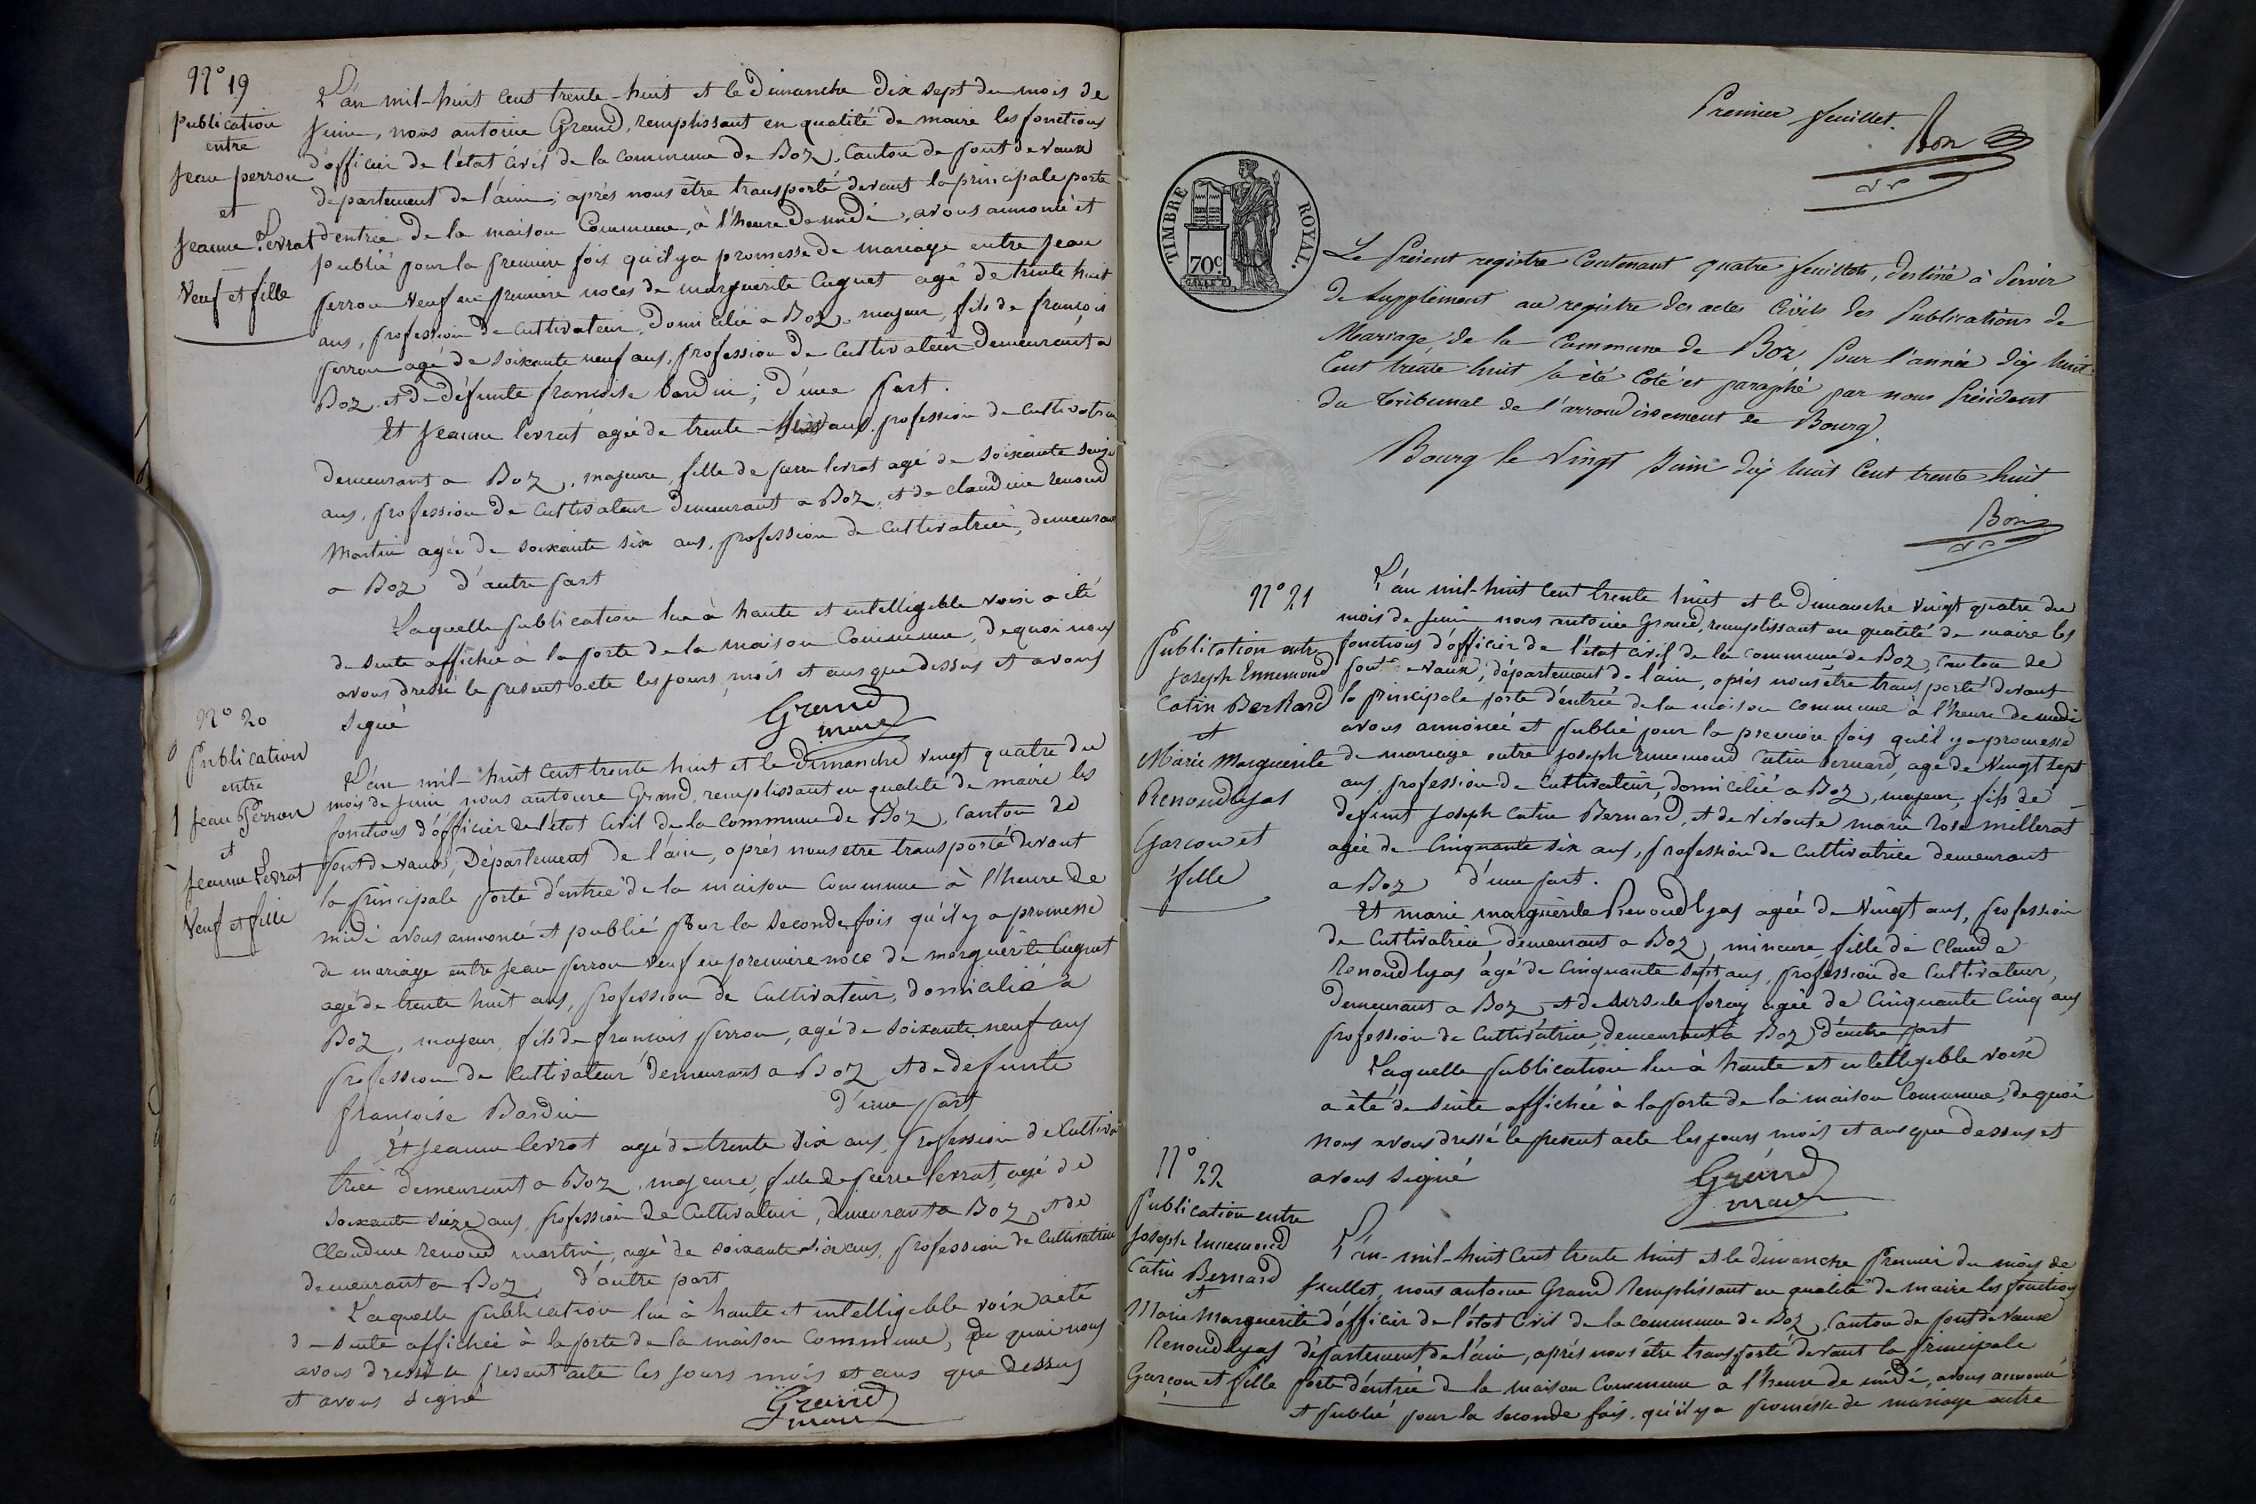 N° 19
Publication
entre
Jean perron
et
Jeanne Levrat
Veuf et fille
L'an mil-huit cent trente-huit et le Dimanche dix sept du mois de
Juin, nous antoine Grand, remplissant en qualité de maire les fonctions
d'officier de l'état civil de la commune de Boz, canton de pont de vaux
departement de l'ain, après nous être transporté devant la principale porte
d'entrée de la maison Commune, à l'heure de midi, avons annoncé et
publié pour la premiere fois qu'il y a promesse de mariage entre Jean
perron veuf en premiere noces de marguerite Cugnet agé de trente huit
ans, profession de cultivateur, domicilié a Boz, majeur, fils de françois
perron agé de soixante neuf ans, profession de Cultivateur Demeurant a
Boz et de défunte francoise bardin; d'une part.
Et Jeanne levrat agée de trente ans profession de Cultivatrice
demeurant a Boz, majeure, fille de pierre levrat agé de soixante seize
ans, profession de Cultivateur demeurant a Boz, et de claudine renoud
Martin agée de soixante six ans, profession de Cultivatrice, demeurant
a Boz d'autre part
Laquelle publication lue à haute et intelligible voix a été
de suite affichée à la porte de la maison Commune, de quoi nous
avons dressé le présent acte les jours, mois et ans que dessus et avons
signé
Grand
maire
N° 20
Publication
entre
Jean Perron
et
Jeanne Levrat
Veuf et fille
L'an mil-huit cent trente huit et le dimanche vingt quatre du
mois de Juin, nous antoine Grand, remplissant en qualité de maire les
fonctions d'officier de l'état Civil de la Commune de Boz, canton de
pont de vaux, Département de l'ain, après nous etre transporté devant
la principale porte d'entrée de la maison Commune à l'heure de
midi avons annoncé et publié pour la seconde fois qu'il y a promesse
de mariage entre Jean perron veuf en premiere noce de marguerite Cugnet
agé de trente huit ans, profession de Cultivateur, domicilié a
Boz, majeur, fils de francois perron, agé de soixante neuf ans
profession de cultivateur demeurant a Boz et de defunte
françoise Bardin d'une part
Et Jeanne levrat agé de trente six ans, profession de Cultiva
trice demeurant a Boz, majeure, fille de pierre levrat, agé de
soixante seize ans, profession de Cultivateur, demeurant a Boz et de
Claudine renoud martin, agé de soixante six ans, profession de Cultivatrice
demeurant a Boz, d'autre part
Laquelle publication lue à haute et intelligible voix a été
de suite affichée à la porte de la maison commune, de quoi nous
avons dressé le present acte les jours mois et ans que dessus
et avons signé
Grand
maire
Premier feuillet.
Bon
TIMBRE ROYAL.
70c
Le présent registre Contenant quatre feuillets, destiné à servir
de supplément au registre des actes civils des Publications de
Mariage de la Commune de Boz, pour l'année dix huit
Cent trente huit a été coté et paraphé par nous Président
du tribunal de l'arrondissement de Bourg.
Bourg le vingt Juin dix huit Cent trente huit
Bon
N° 21
Publication entre
Joseph Ennemond
Catin Bernard
et
Marie Marguerite
Renoud lyas
Garcon et
fille
L'an mil-huit cent trente huit et le Dimanche vingt quatre du
mois de Juin nous antoine Grand, remplissant en qualité de maire les
fonctions d'officier de l'état civil de la commune de Boz, canton de
pont de vaux, département de l'ain, après nous être transporté devant
la principale porte d'entrée de la maison commune à l'heure de midi
avons annoncé et publié pour la premiere fois qu'il y a promesse
de mariage entre joseph ennemond catin bernard, agé de vingt sept
ans, profession de Cultivateur, domicilié a Boz, majeur, fils de
defunt Joseph catin Bernard, et de vivante marie rose millerat
agée de Cinquante six ans, profession de cultivatrice demeurant
a Boz d'une part.
Et marie marguerite Renoud lyas agée de vingt ans, profession
de Cultivatrice demeurant a Boz, mineure, fille de Claude
Renoud lyas agé de cinquante sept ans, profession de Cultivateur,
demeurant a Boz, et de ursule foray agée de Cinquante Cinq ans
profession de Cultivatrice, demeurant a Boz, d'autre part
Laquelle publication lue à haute et intelligible voix
a été de suite affichée à la porte de la maison commune, de quoi
nous avons dressé le present acte les jours mois et ans que dessus et
avons signé
Grand
maire
N°
22
Publication entre
Joseph Ennemond
Catin Bernard
et
Marie Marguerite
Renoud lyas
Garçon et fille
L'an-mil-huit Cent trente huit et le dimanche premier du mois de
Juillet, nous antoine Grand remplissant en qualité de maire les fonctions
d'officier de l'état Civil de la commune de Boz, Canton de pont de vaux
département de l'ain, après nous être transporté devant la principale
porte d'entrée de la maison Commune a l'heure de midi, avons annoncé
et publié pour la seconde fois, qu'il y a promesse de mariage entre